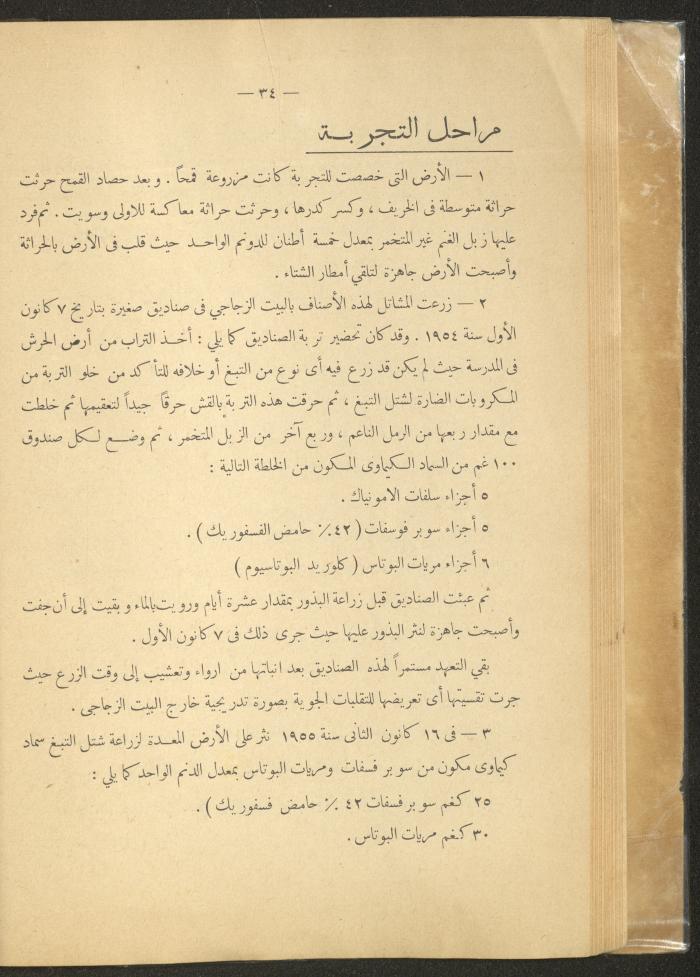 — ٣٤ —
مراحل التجربة
١ — الأرض التى خصصت للتجربة كانت مزروعة قمحاً . وبعد حصاد القمح حرثت
حراثة متوسطة فى الخريف ، وكسر كدرها ، وحرثت حراثة معاكسة للاولى وسويت . ثم فرد
عليها زبل الغنم غير المتخمر بمعدل خمسة أطنان للدونم الواحد حيث قلب فى الأرض بالحراثة
وأصبحت الأرض جاهزة لتلقي أمطار الشتاء .
٢ — زرعت المشاتل لهذه الأصناف بالبيت الزجاجي فى صناديق صغيرة بتاريخ ٧ كانون
الأول سنة ١٩٥٤ . وقد كان تحضير تربة الصناديق كما يلي : أخذ التراب من أرض الحرش
فى المدرسة حيث لم يكن قد زرع فيه أى نوع من التبغ أو خلافه للتأكد من خلو التربة من
المكروبات الضارة لشتل التبغ ، ثم حرقت هذه التربة بالقش حرقاً جيداً لتعقيمها ثم خلطت
مع مقدار ربعها من الرمل الناعم ، وربع آخر من الزبل المتخمر ، ثم وضع لكل صندوق
١٠٠ غم من السماد الكيماوى المكون من الخلطة التالية :
٥ أجزاء سلفات الامونياك .
٥ أجزاء سوبر فوسفات ( ٤٢٪ حامض الفسفوريك ) .
٦ أجزاء مريات البوتاس ( كلوريد البوتاسيوم )
ثم عبئت الصناديق قبل زراعة البذور بمقدار عشرة أيام ورويت بالماء وبقيت إلى أن جفت
وأصبحت جاهزة لنثر البذور عليها حيث جرى ذلك فى ٧ كانون الأول .
بقي التعهد مستمراً لهذه الصناديق بعد انباتها من ارواء وتعشيب إلى وقت الزرع حيث
جرت تقسيتها أى تعريضها للتقلبات الجوية بصورة تدريجية خارج البيت الزجاجى .
٣ — فى ١٦ كانون الثانى سنة ١٩٥٥ نثر على الأرض المعدة لزراعة شتل التبغ سماد
كيماوى مكون من سوبر فسفات ومريات البوتاس بمعدل الدنم الواحد كما يلي :
٢٥ كغم سوبر فسفات ٤٢ ٪ حامض فسفوريك ) .
٣٠ كغم مريات البوتاس .